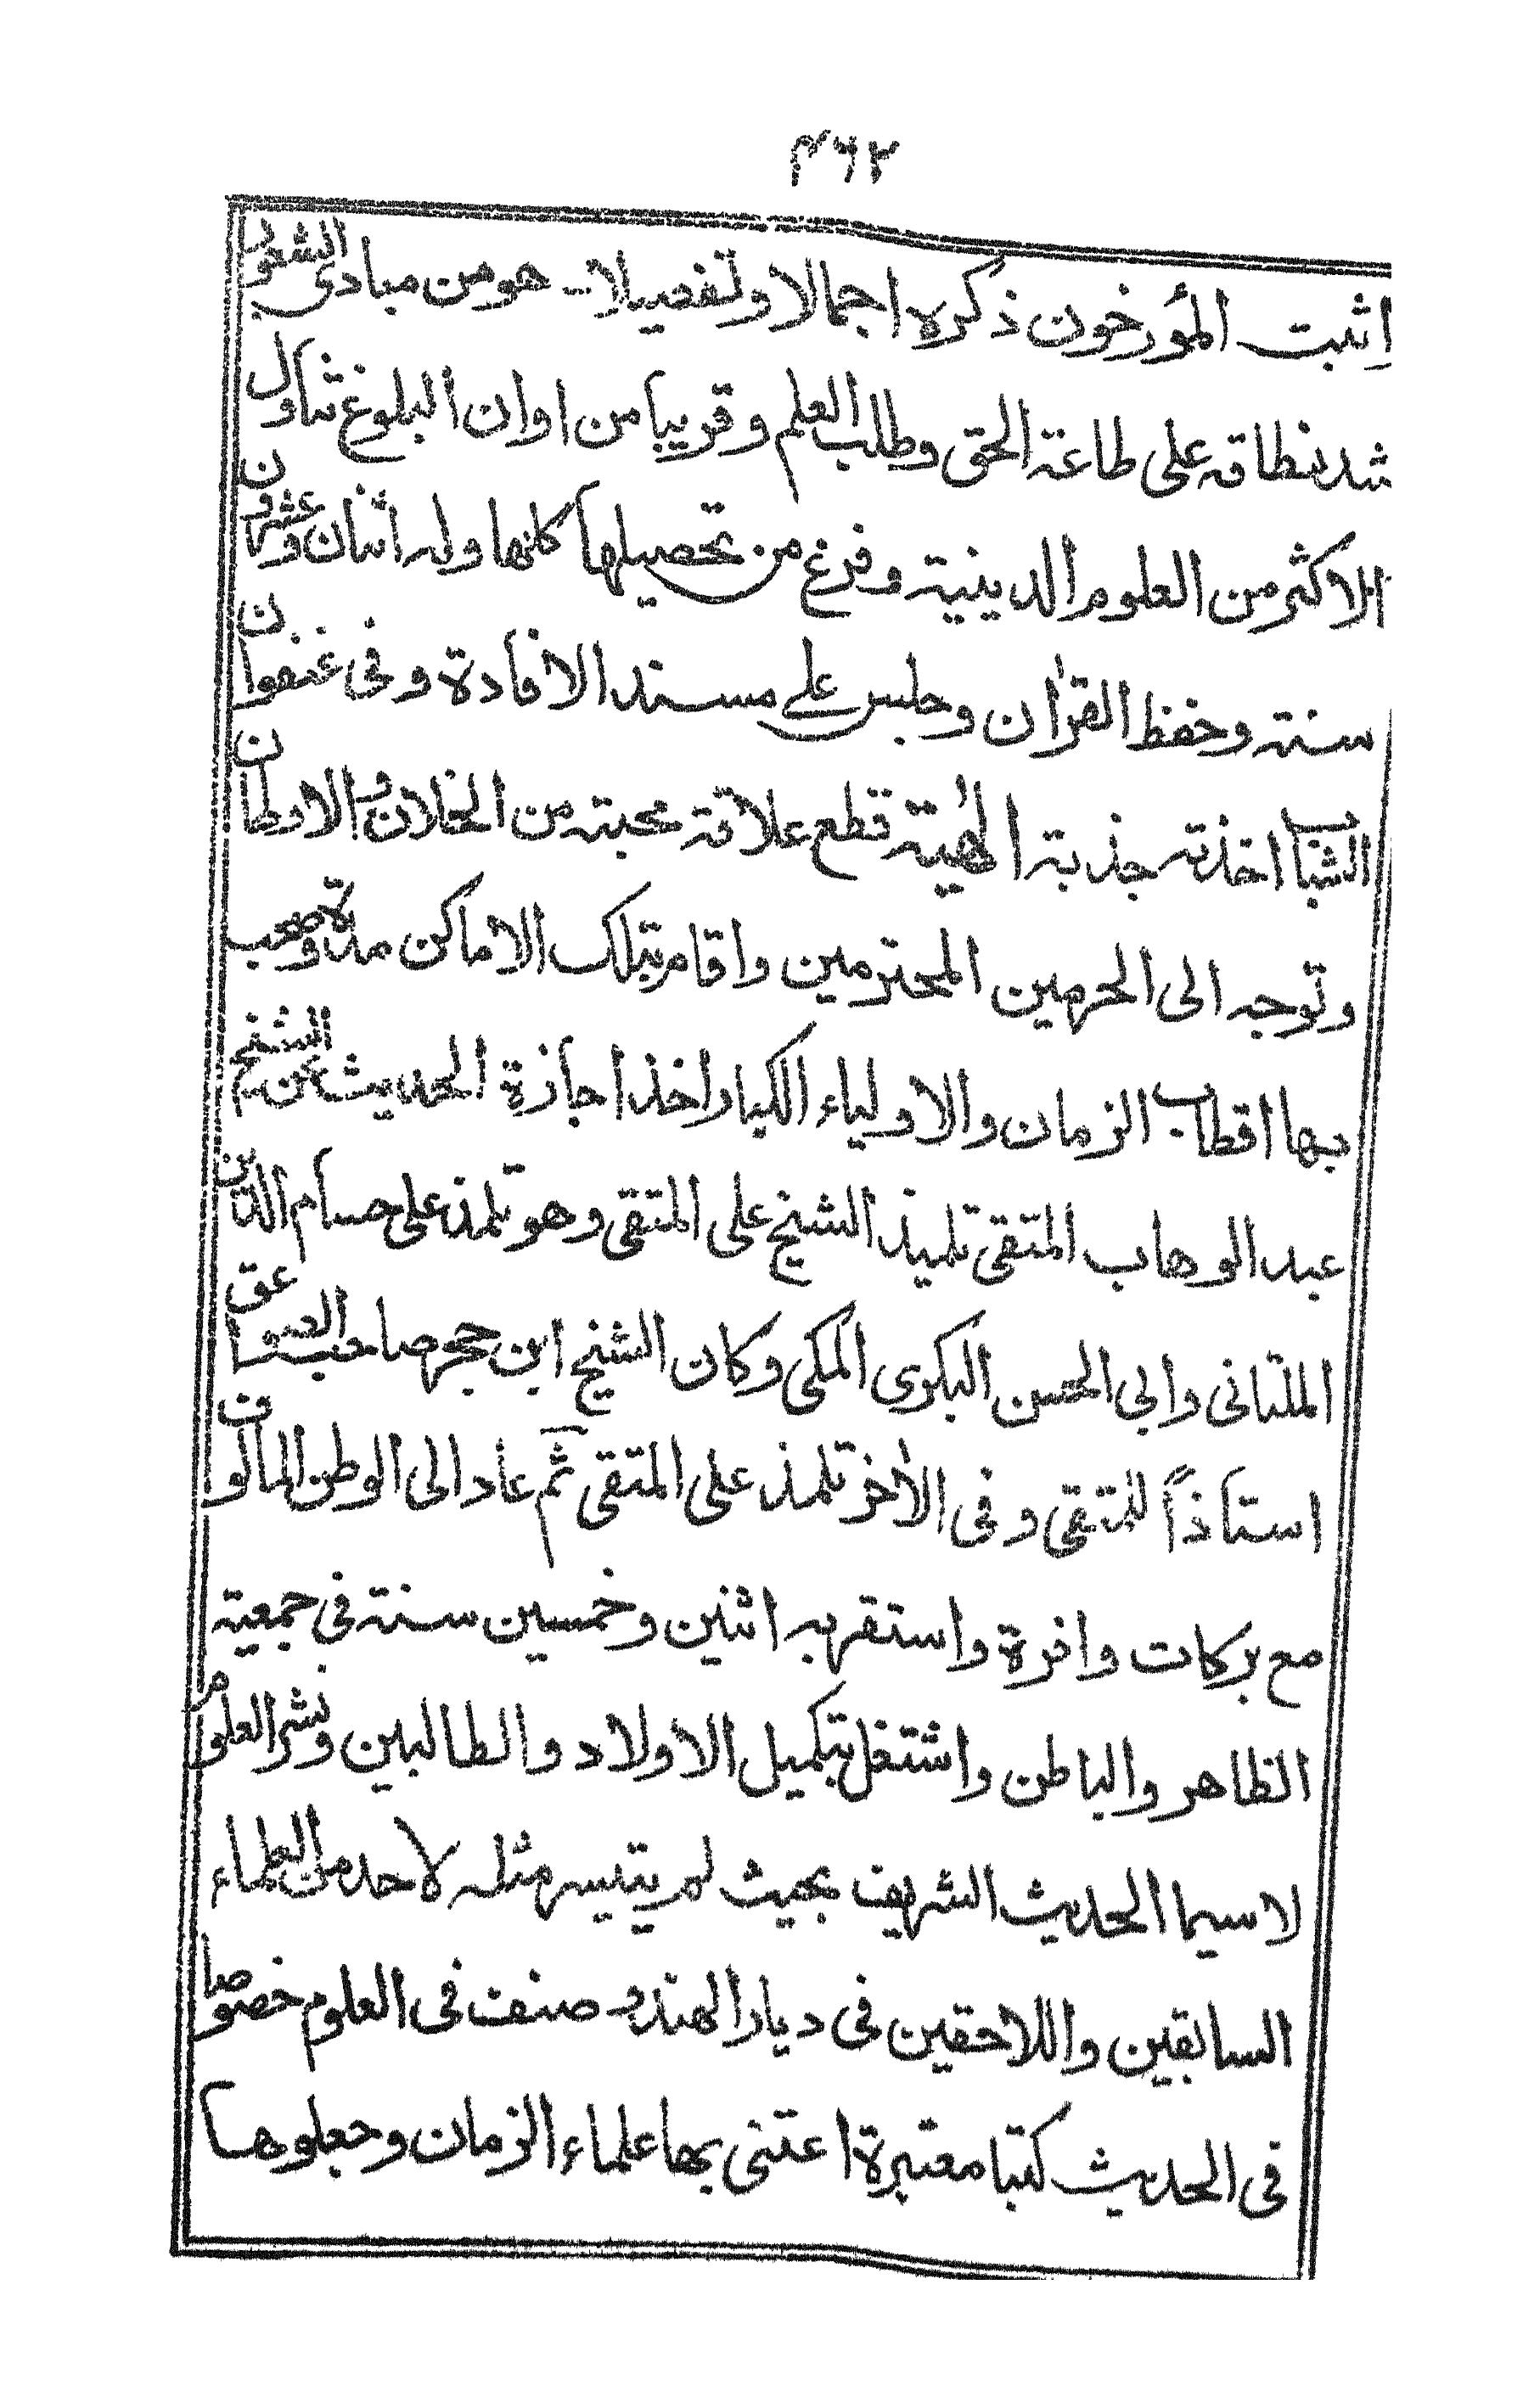 ٤٦٢
اثبت المؤرخون ذكره اجمالا وتفصيلا هو من مبادى الشعور
شد نطاقه على طاعة الحق وطلب العلم وقريبا من اوان البلوغ تناول
الاكثر من العلوم الدينية وفرغ من تحصيلها كلها وله اثنان وعشرون
سنة وحفظ القرآن وجلس على مسند الافادة وفى عنفوان
الشباب اخذته جذبة الٰهية قطع علاقة محبته من الخلان والاوطان
وتوجه الى الحرمين المحترمين واقام بتلك الاماكن مدة وصحب
بها اقطاب الزمان والاولياء الكبار واخذ اجازة الحديث عن الشيخ
عبد الوهاب المتقى تلميذ الشيخ على المتقى وهو تلمذ على حسام الدين
الملتانى وابى الحسن البكرى المكى وكان الشيخ ابن حجر صاحب الصواعق
استاذاً للمتقى وفى الآخر تلمذ على المتقى ثم عاد الى الوطن المألوف
مع بركات وافرة واستقر به اثنين وخمسين سنة فى جمعية
الظاهر والباطن واشتغل بتكميل الاولاد والطالبين ونشر العلوم
لا سيما الحديث الشريف بحيث لم يتيسر مثله لاحد من العلماء
السابقين واللاحقين فى ديار الهند وصنف فى العلوم خصوصا
فى الحديث كتبا معتبرة اعتنى بها علماء الزمان وجعلوها